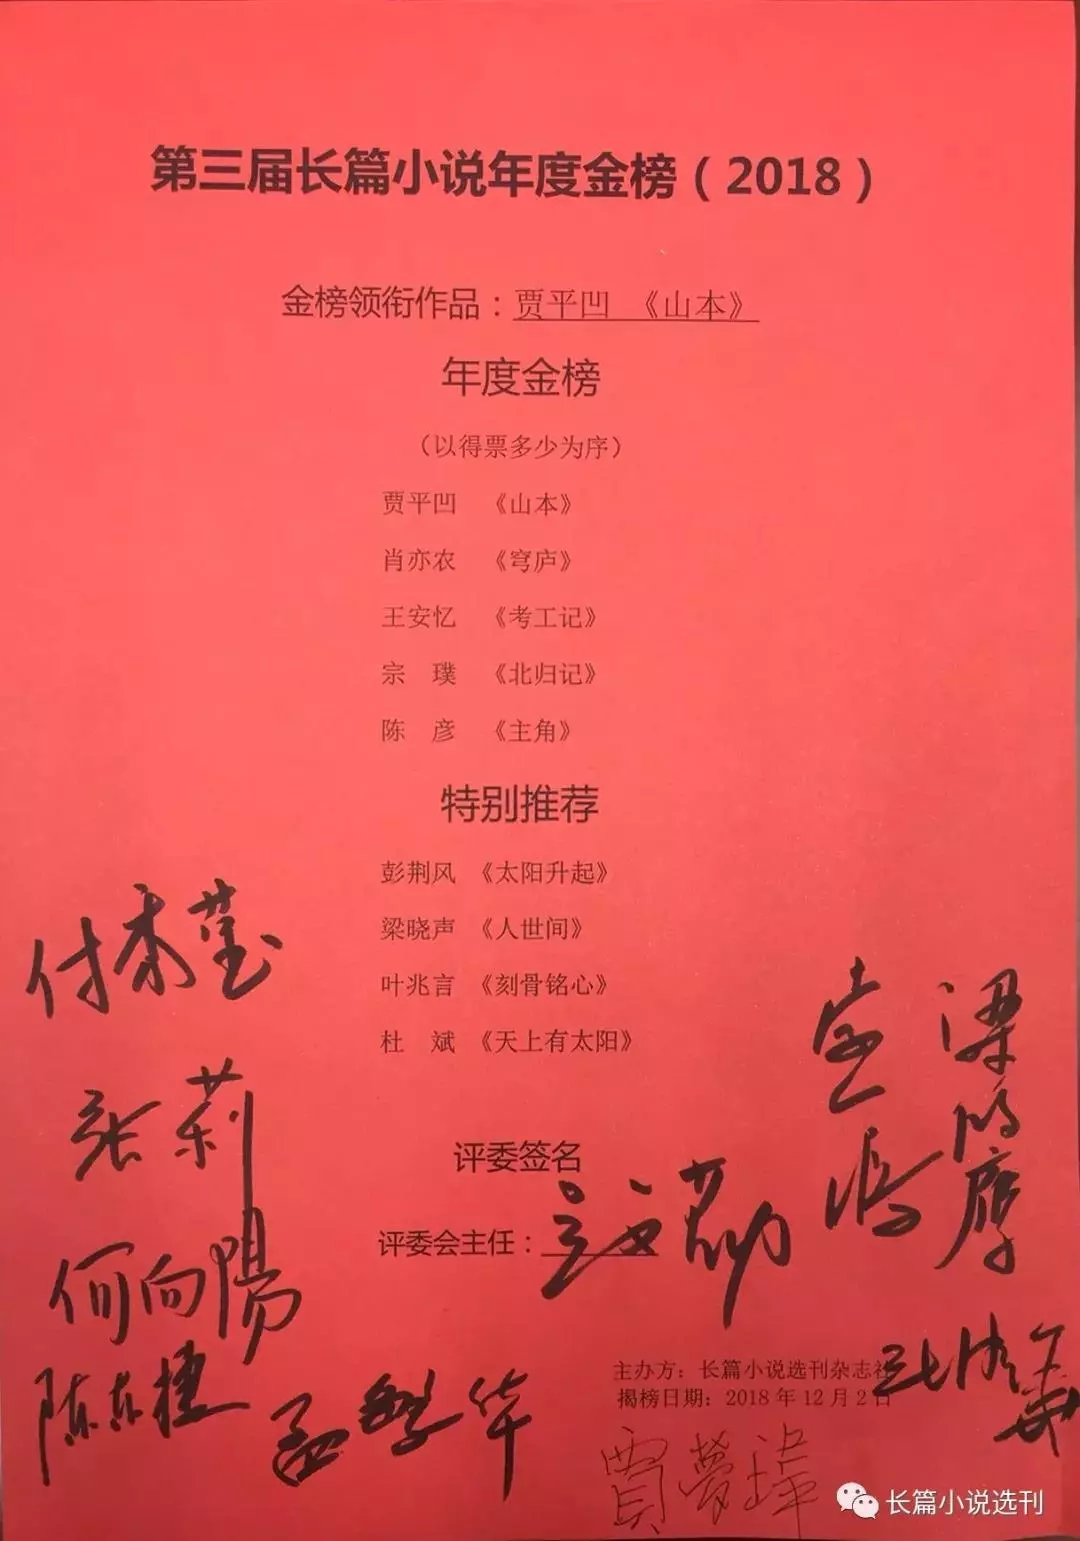 第三届长篇小说年度金榜（2018）
金榜领衔作品：贾平凹 《山本》
年度金榜
（以得票多少为序）
贾平凹 《山本》
肖亦农 《穹庐》
王安忆 《考工记》
宗 璞 《北归记》
陈 彦 《主角》
特别推荐
彭荆风 《太阳升起》
梁晓声 《人世间》
叶兆言 《刻骨铭心》
杜 斌 《天上有太阳》
付秀莹
张莉
何向陽
陈东捷
孟繁华
梁鸿鹰
评委签名
评委会主任：
主办方：长篇小说选刊杂志社
揭榜日期：2018年12月2日
賈夢瑋
长篇小说选刊